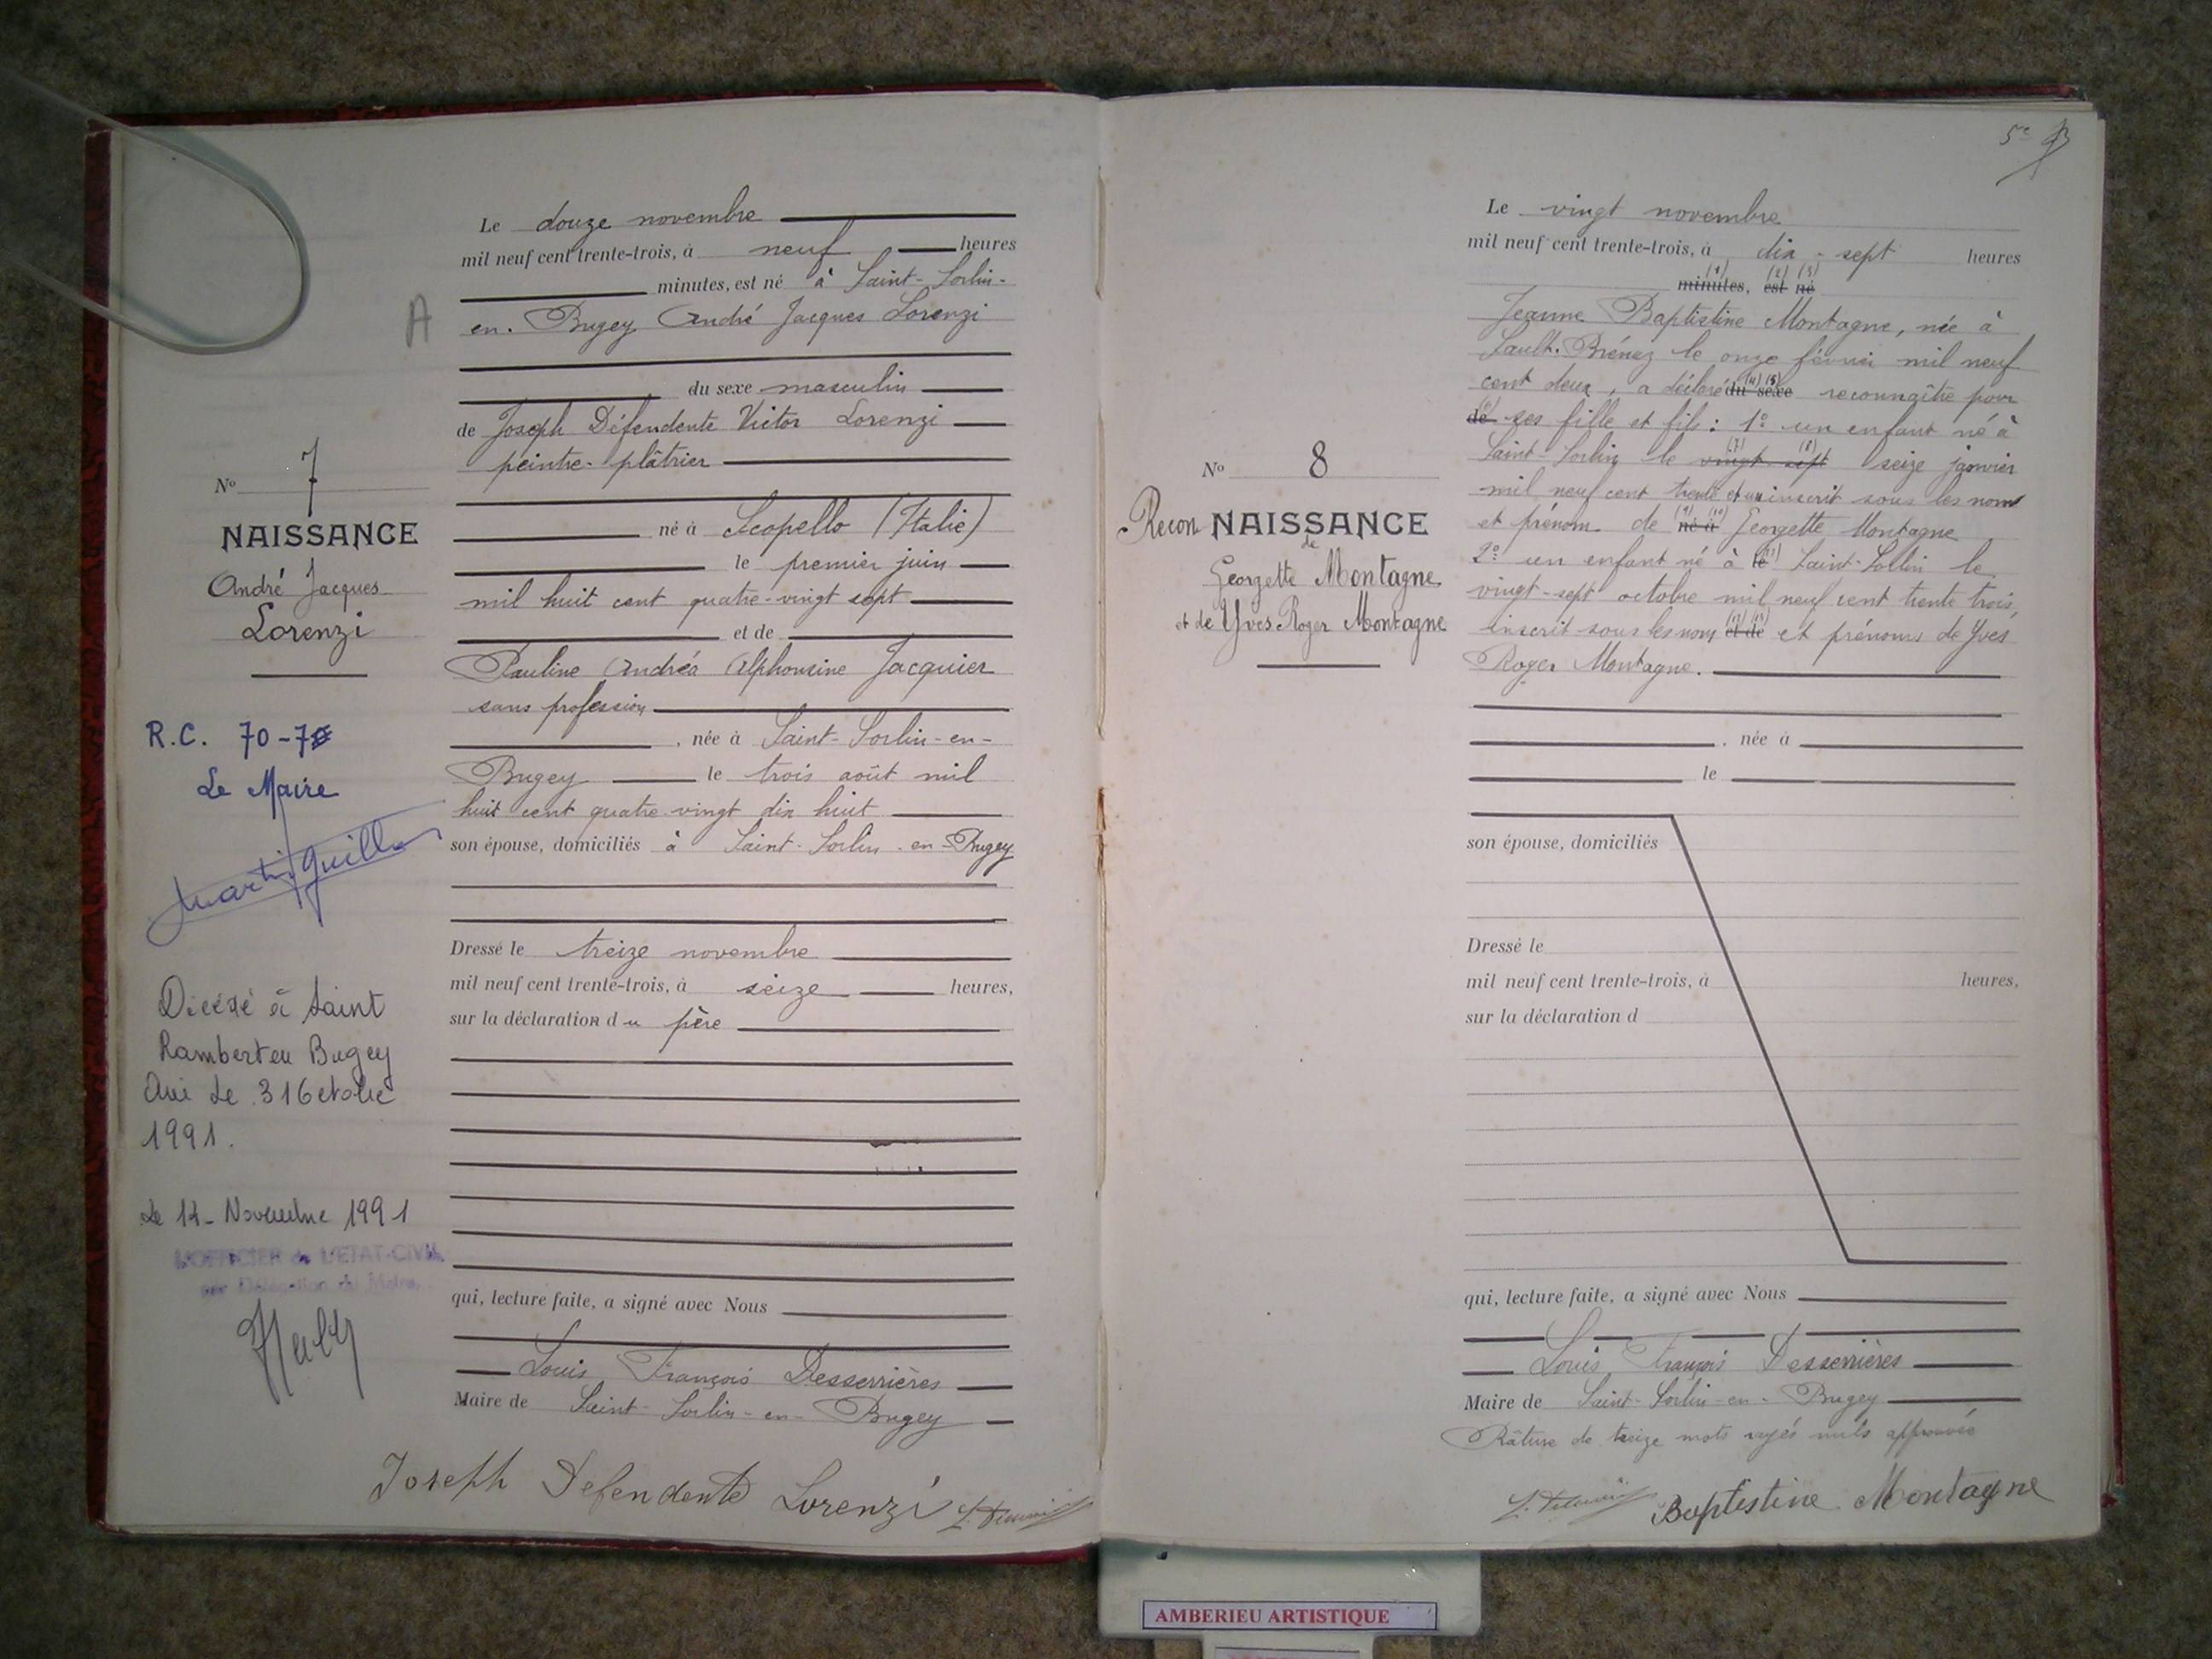 Le douze novembre
mil neuf cent trente-trois, à neuf heures
minutes, est né à Saint-Sorlin-
en-Bugey André Jacques Lorenzi
A
du sexe masculin
de Joseph Défendente Victor Lorenzi
peintre-plâtrier
né à Scopello (Italie)
le premier juin
mil huit cent quatre-vingt sept
et de
Pauline Andréa Alphonsine Jacquier
sans profession
, née à Saint-Sorlin-en-
Bugey le trois août mil
huit cent quatre-vingt dix huit
son épouse, domiciliés à Saint-Sorlin-en-Bugey
Dressé le treize novembre
mil neuf cent trente-trois, à seize heures,
sur la déclaration du père
qui, lecture faite, a signé avec Nous
Louis François Desserrières
Maire de Saint-Sorlin-en-Bugey
Joseph Defendente Lorenzi
No 7
NAISSANCE
André Jacques
Lorenzi
R.C. 70-7
Le Maire
Décédé à Saint
Rambert en Bugey
Ain Le 31 Octobre
1991.
Le 12 - Novembre 1991
L'OFFICIER de L'ETAT-CIVIL
par Délégation du Maire,
5e
Le vingt novembre
mil neuf cent trente-trois, à dix-sept heures
(1) (2) (3)
minutes, est né
Jeanne Baptistine Montagne, née à
Sault-Brénaz le onze février mil neuf
cent deux, a déclaré du (4) sexe (5) reconnaître pour
de ses fille et fils : 1° un enfant né à
Saint-Sorlin le vingt (7) sept (8) seize janvier
mil neuf cent trente et un inscrit sous les nom
et prénom de né (9) à (10) Georgette Montagne
2° un enfant né à le (11) Saint-Sorlin le
vingt-sept octobre mil neuf cent trente trois,
inscrit sous les nom et (12) de (13) et prénoms de Yves
Roger Montagne.
, née à
le
son épouse, domiciliés
Dressé le
mil neuf cent trente-trois, à heures,
sur la déclaration d
qui, lecture faite, a signé avec Nous
Louis François Desserrières
Maire de Saint-Sorlin-en-Bugey
Râture de treize mots rayés nuls approuvés
Baptistine Montagne
No 8
Recon NAISSANCE
de
Georgette Montagne
et de Yves Roger Montagne
AMBERIEU ARTISTIQUE